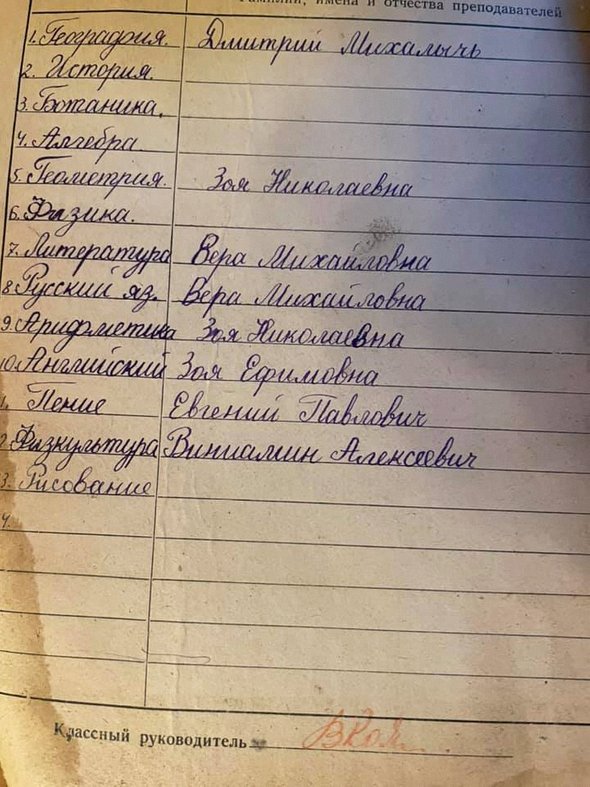 Фамилии, имена и отчества преподавателей
1. География. Дмитрий Михалычь
2. История.
3. Ботаника.
4. Алгебра.
5. Геометрия. Зоя Николаевна
6. Физика.
7. Литература Вера Михайловна
8. Русский яз. Вера Михайловна
9. Арифметика Зоя Николаевна
10. Английский Зоя Ефимовна
1. Пение Евгений Павлович
2. Физкультура Виниамин Алексеевич
3. Рисование
4.
Классный руководитель